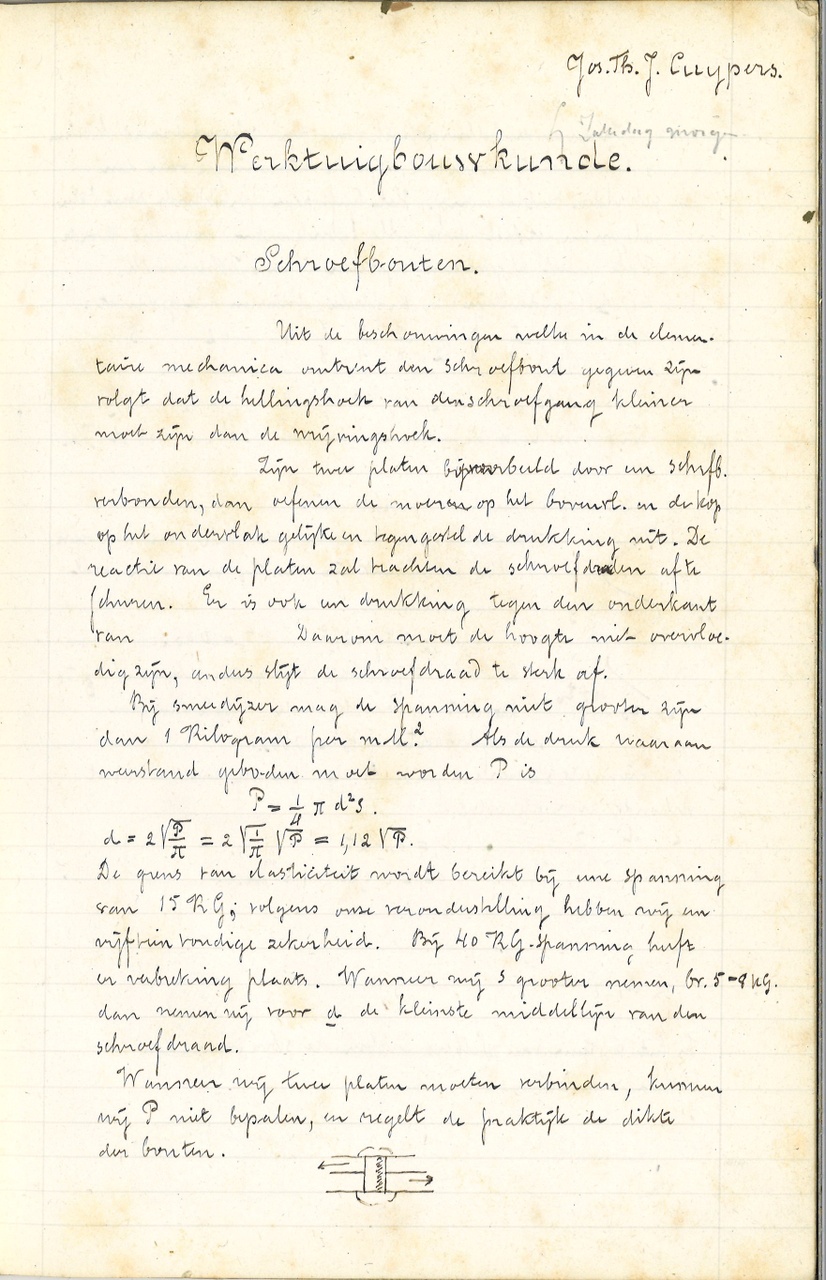 Jos. Th. J. Cuypers.
Zaterdag morgen
Werktuigbouwkunde.
Schroefbouten.
Uit de beschouwingen welke in de elemen-
taire mechanica omtrent den schroefbout gegeven zijn
volgt dat de hellingshoek van den schroefgang kleiner
moet zijn dan de wrijvingshoek.
Zijn twee platen bijvoorbeeld door een schrfb.
verbonden, dan oefenen de moeren op het bovenvl. en de kop
op het ondervlak gelijke en tegengestelde drukking uit. De
reactie van de platen zal trachten de schroefdraden af te
schuren. Er is ook een drukking tegen den onderkant
van Daarom moet de hoogte niet overvloe-
dig zijn, anders slijt de schroefdraad te sterk af.
Bij smeedijzer mag de spanning niet grooter zijn
dan 1 Kilogram per m.M.² Als de druk waaraan
weerstand geboden moet worden P is
P = 1/4 π d² s.
d = 2 √P/π = 2 √1/π √P = 1,12 √P.
De grens van elasticiteit wordt bereikt bij eene spanning
van 15 KG; volgens onze veronderstelling hebben wij een
vijftienvoudige zekerheid. Bij 40 KG. spanning heeft
er verbreking plaats. Wanneer wij s grooter nemen, bv. 5-8 KG.
dan nemen wij voor d de kleinste middellijn van den
schroefdraad.
Wanneer wij twee platen moeten verbinden, kunnen
wij P niet bepalen, en regelt de praktijk de dikte
der bouten.